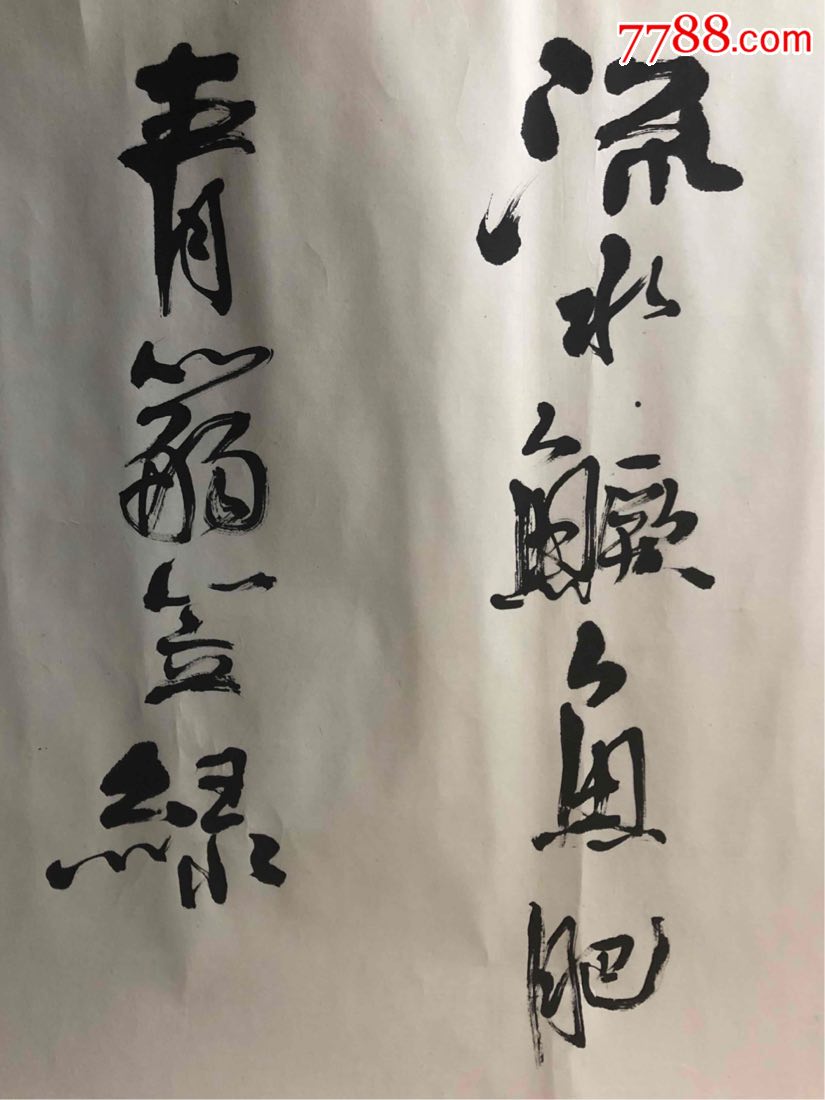 7788.com
流水鱖魚肥
青箬笠緑